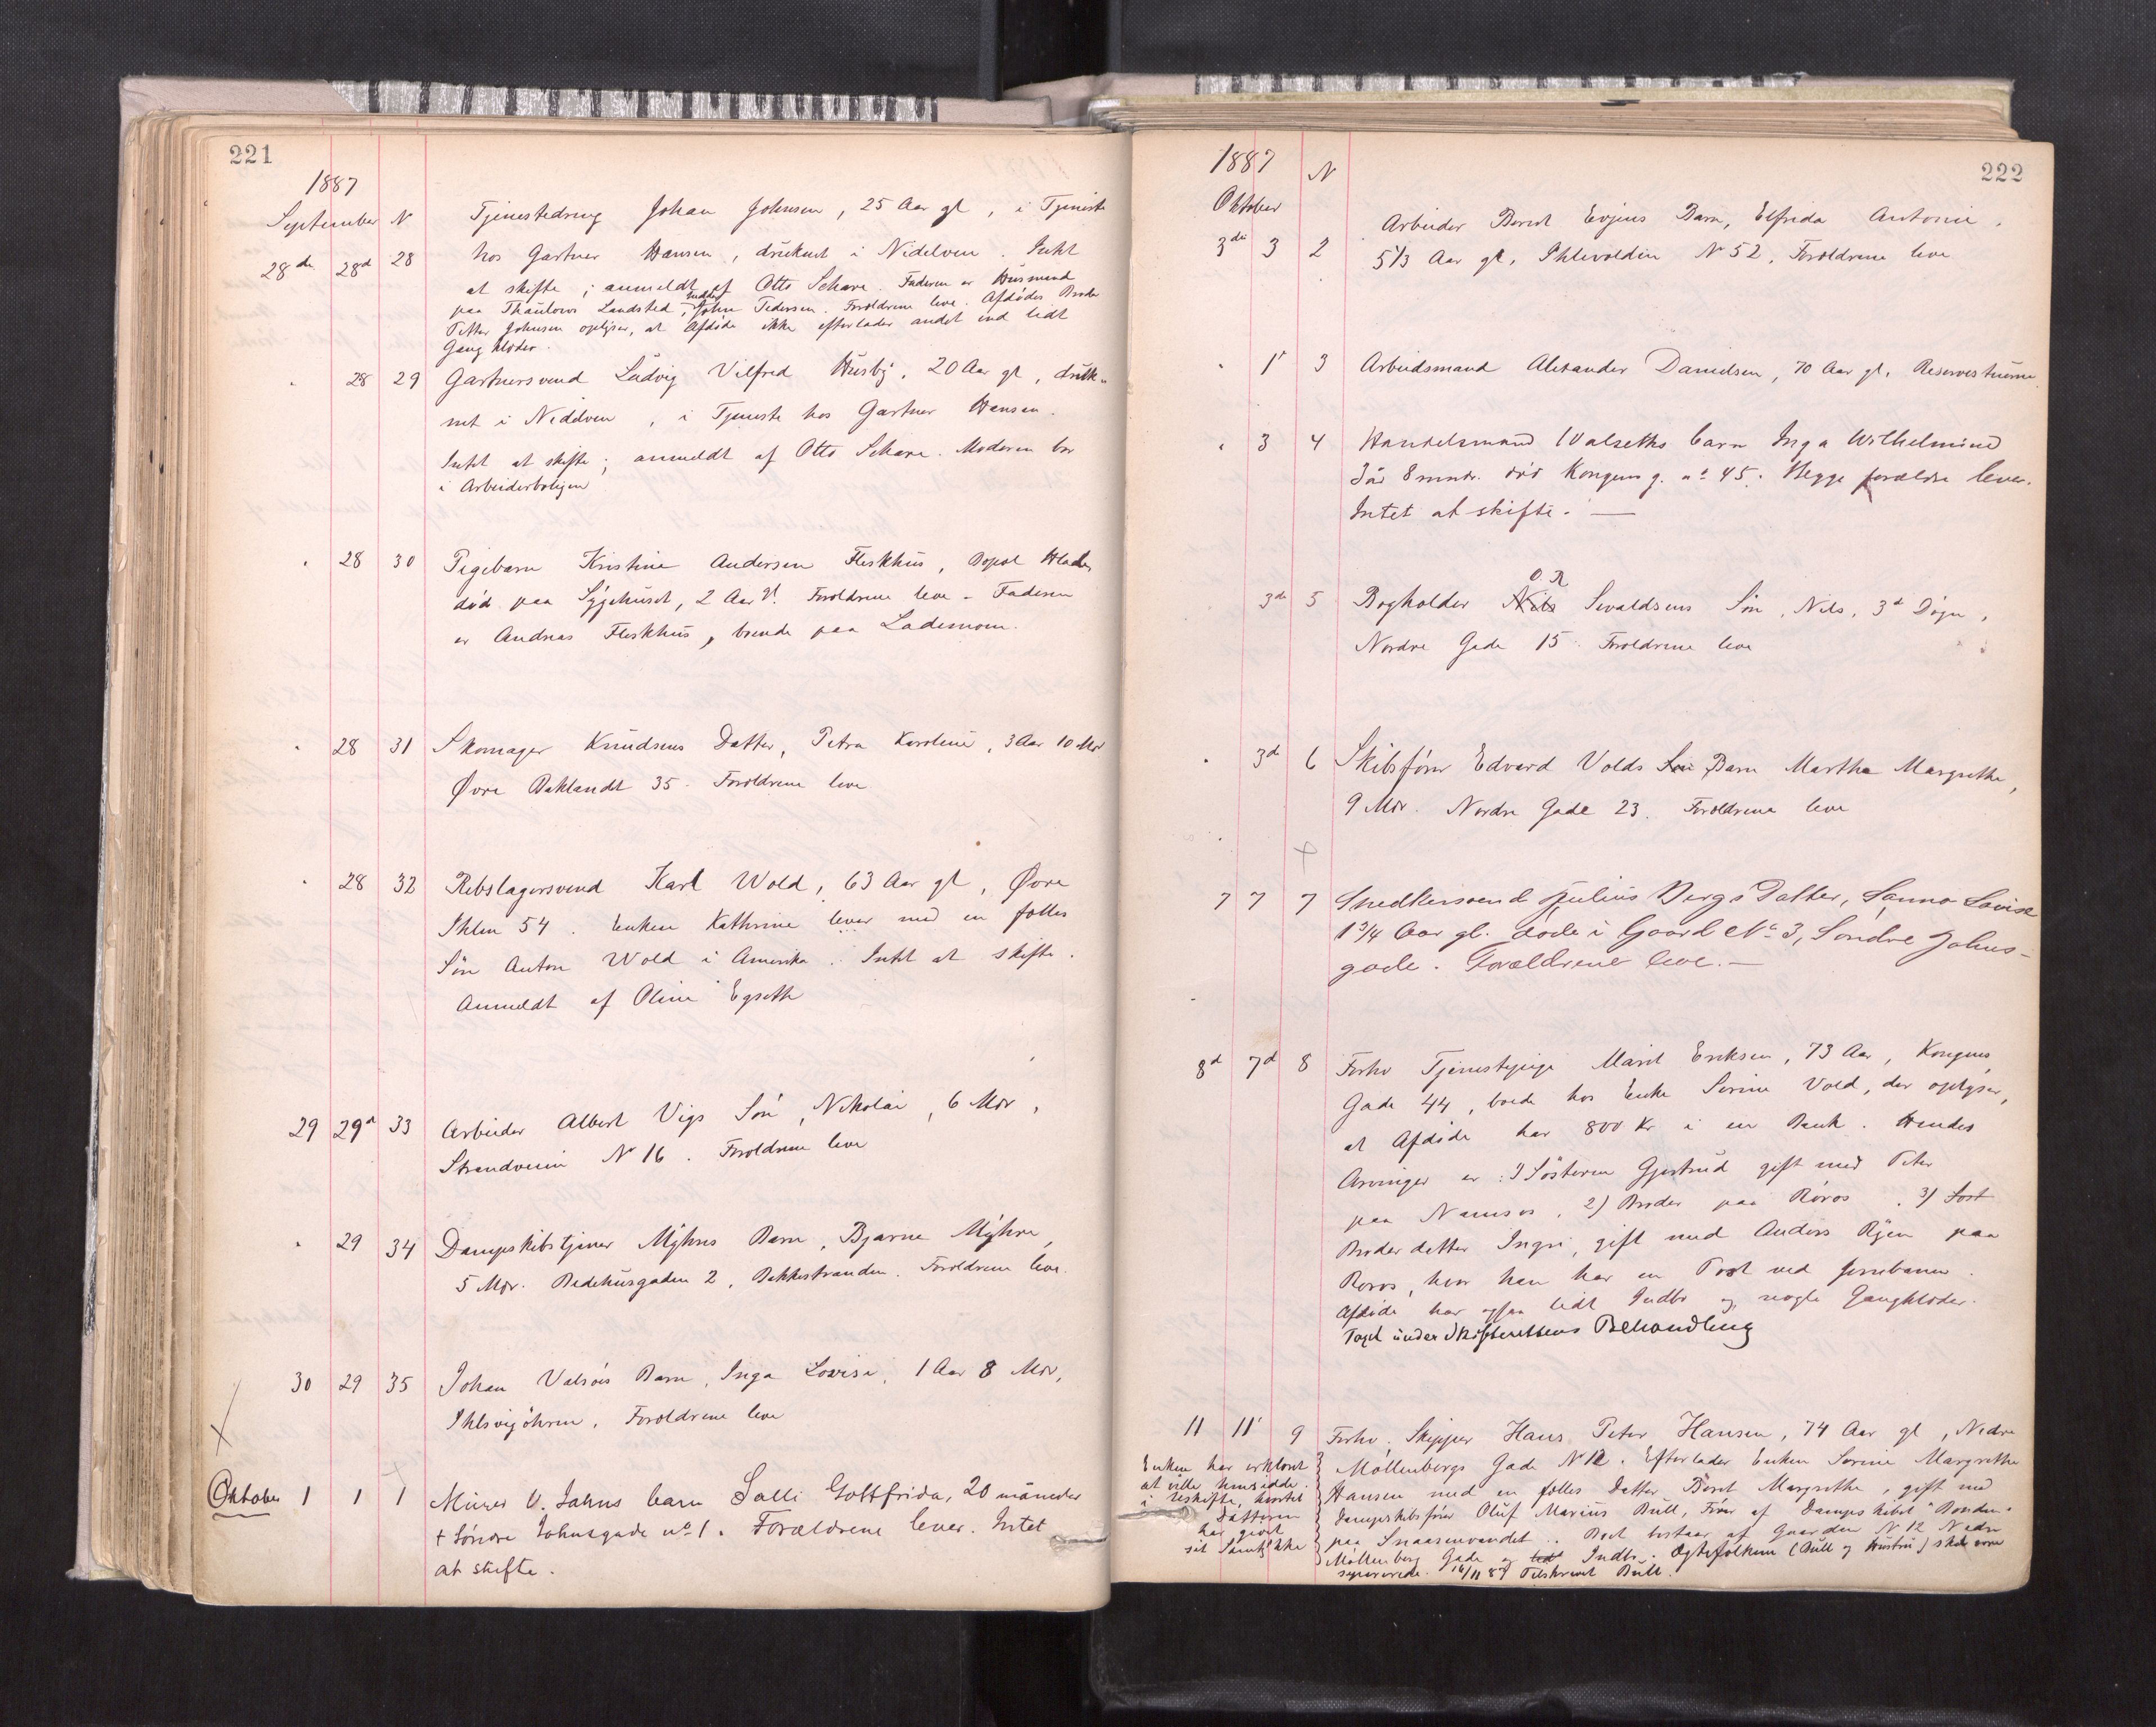 221
1887
September N Tjenestedreng Johan Johnsen, 25 Aar gl, i Tjeneste
28de 28d 28 hos Gartner Hansen, druknet i Nidelven. Intet
at skifte; anmeldt af Otto Schave. Faderen er Husmand
paa Thaulows Landsted, John Pedersen. Forældrene leve. Afdødes Broder
Petter Johnsen oplyser, at Afdøde ikke efterlader andet end lidt
Gangklæder.
" 28 29 Gartnersvend Ludvig Vilfred Husby, 20 Aar gl, druk-
net i Nidelven, i Tjeneste hos Gartner Hansen.
Intet at skifte; anmeldt af Otto Schave. Moderen bor
i Arbeiderboligen
" 28 30 Pigebarn Kristine Andersen Fleskhus, Bopæl Hlade,
død paa Sygehuset, 2 Aar gl. Forældrene leve - Faderen
er Andreas Fleskhus, boende paa Lademoen.
" 28 31 Skomager Knudsens Datter, Petra Karoline, 3 Aar 10 Mdr
Øvre Baklandt 35. Forældrene leve
" 28 32 Rebslagersvend Karl Wold, 63 Aar gl, Øvre
Ihlen 54. Enken Kathrine lever med en fælles
Søn Anton Wold i Amerika. Intet at skifte.
Anmeldt af Oline Egseth
29 29d 33 Arbeider Albert Vigs Søn, Nikolai, 6 Mdr,
Strandveien No 16. Forældrene leve
" 29 34 Dampskibstjener Myhres Barn, Bjarne Myhre,
5 Mdr. Bedehusgaden 2, Bakkestranden. Forældrene leve.
30 29 35 Johan Valsøs Barn, Inga Lovise, 1 Aar 8 Mdr,
Ihlsvigøhren. Forældrene leve
Oktober 1 1 1 Murer V. Jahns barn Salli Gottfrida, 20 måneder
+ Søndre Johnsgade no 1. Forældrene lever. Intet
at skifte.
222
1887 N
Oktober Arbeider Berndt Evjens Barn, Elfrida Antonie,
3die 3 2 5 1/3 Aar gl, Ihlevolden No 52, Forældrene leve
" 1' 3 Arbeidsmand Alexander Danielsen, 70 Aar gl. Reservestuerne.
" 3 4 Handelsmand Valseths barn Inga Wilhelmine
3 år 8 mndr. død Kongens g. no 45. Begge forældre lever.
Intet at skifte. —
O. R
3de 5 Bogholder Nils Sivaldsens Søn, Nils, 3 Døgn,
Nordre Gade 15. Forældrene leve
" 3de 6 Skibsfører Edvard Volds Søn Barn Martha Margrethe,
9 Mdr. Nordre Gade 23. Forældrene leve
7 7 7 Snedkersvend Julius Bergs Datter, Sanna Lovise
1 3/4 Aar gl. døde i Gaard No 3, Søndre Johns-
gade. Forældrene leve. —
8d 7d 8 Forhv Tjenestepige Marit Eriksen, 73 Aar, Kongens
Gade 44, boede hos Enke Serine Vold, der oplyser,
at Afdøde har 800 Kr i en Bank. Hendes
Arvinger er: 1) Søsteren Gjertrud gift med Peter
paa Namsos. 2) Broder paa Røros. 3) Søst
Broderdatter Ingri, gift med Anders Ryen paa
Røros, hvor han har en Post ved Jernbanen.
Afdøde har ogsaa lidt Indbo og nogle Gangklæder.
Taget under Skifterettens Behandling
11 11' 9 Forhv. Skipper Hans Peter Hansen, 74 Aar gl, Nedre
Møllenbergs Gade No 12. Efterlader Enken Serine Margrethe
Hansen med en fælles Datter Beret Margrethe, gift med
Dampskibsfører Oluf Marius Bull, Fører af Dampskibet "Bonden"
paa Snaasenvandet. Boet bestaar af Gaarden No 12 Nedre
Møllenberg Gade og lidt Indbo. Ægtefolkene (Bull og Hustru) skal være
separerede. 16/11 87 Tilskrevet Bull.
Enken har erklæret
at ville hensidde
i Uskifte, hvortil
Datteren
har givet
sit Samtykke